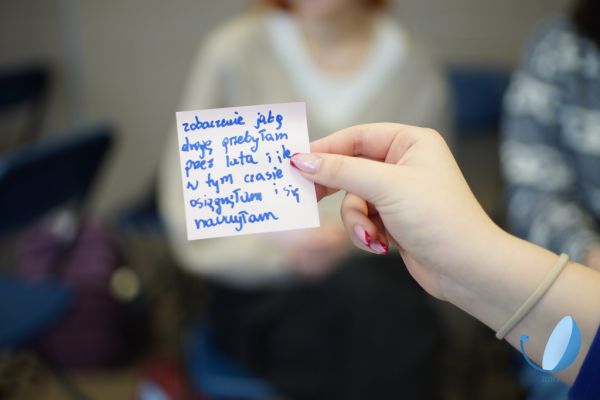 zobaczenie jaką
drogę przebyłam
przez lata i ile
w tym czasie
osiągnęłam i się
nauczyłam